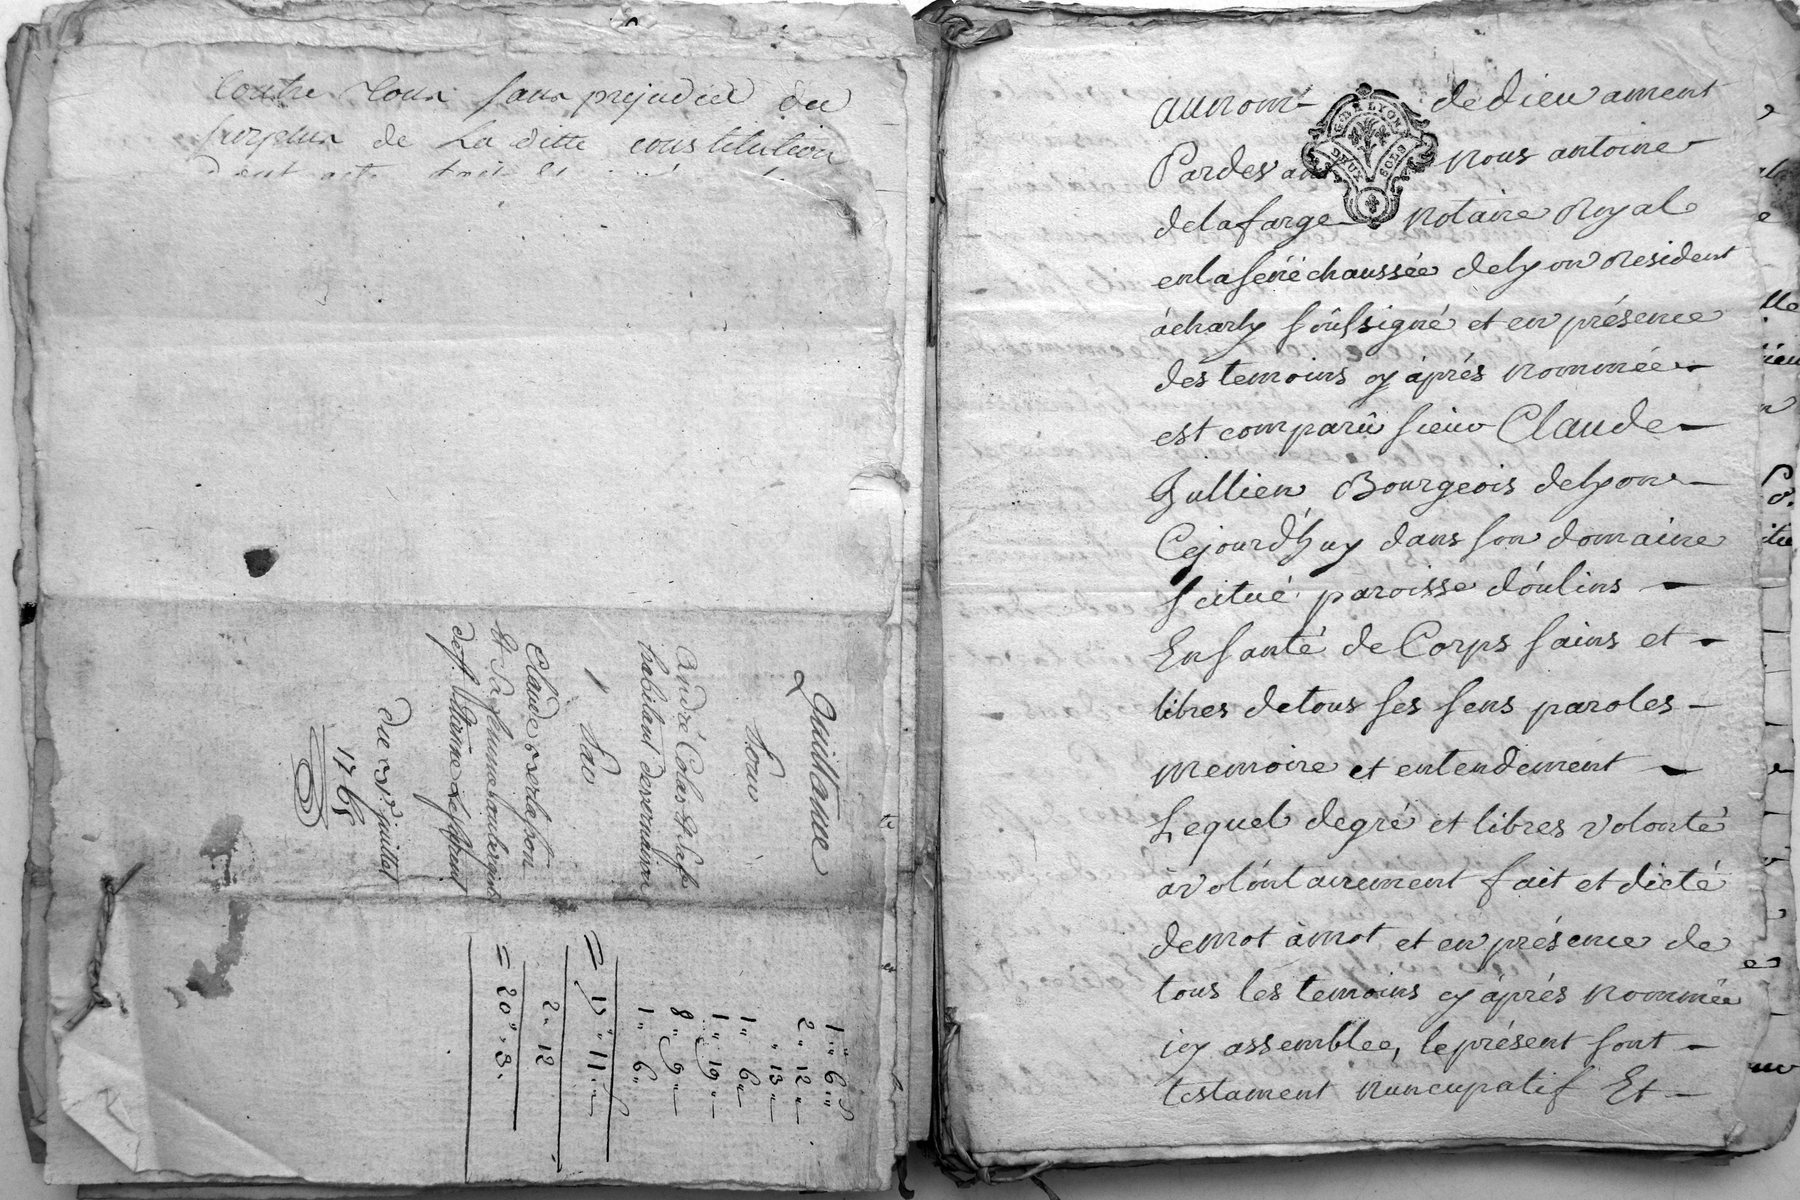 Contre Tour sans prejudice du
surplus de La ditte constitution
Quittance
Pour
André Colas
habitant
Claude
Du
juillet
1765
1 " 6 "
2 " 12 "
" 13 "
1 " 6 "
1 " 19 "
8 " 9 "
1 " 6 "
= 17 " 11 "
2 " 12
= 20 " 3 "
au nom de dieu ament
G. D. LYON
DEUX SOLS
Pardevant Nous antoine
delafarge Notaire Royal
en la sénéchaussée de lyon resident
à charly soûssigné et en présence
des temoins cy áprés nommée
est comparû sieur Claude
Jullien Bourgeois delyon
Cejourd'huy dans son domaine
scitué paroisse d'óulins
En santé de Corps sains et
libres detous ses sens paroles
memoire et entendement
Lequel degré et libres volonté
à volóntairement fait et dicté
demot àmot et en présence de
tous les temoins cy áprés nommée
icy assemblee, le présent sont
testament nuncupatif Et